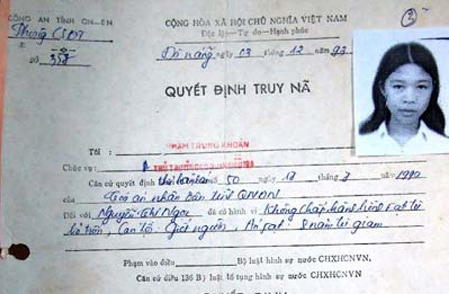 CÔNG AN TỈNH QN-ĐN
Phòng CSĐT
SỐ 358
CỘNG HÒA XÃ HỘI CHỦ NGHĨA VIỆT NAM
Độc lập—Tự do—Hạnh phúc
Đà nẵng ngày 03 tháng 12 93
2
QUYẾT ĐỊNH TRUY NÃ
Tôi : PHẠM TRUNG KHOẢN
Chức vụ :
Căn cứ quyết định thi hành án số 50 ngày 17 tháng 7 1990
của Tòa án nhân dân tỉnh QNĐN
Đối với Nguyễn Thị Ngọc đã có hành vi Không chấp hành hình phạt tù
bỏ trốn, Can tội: Giết người, Án phạt: 8 năm tù giam
Phạm vào điều Bộ luật hình sự nước CHXHCNVN.
Căn cứ điều 136 Bộ luật tố tụng hình sự nước CHXHCNVN
QUYẾT ĐỊNH